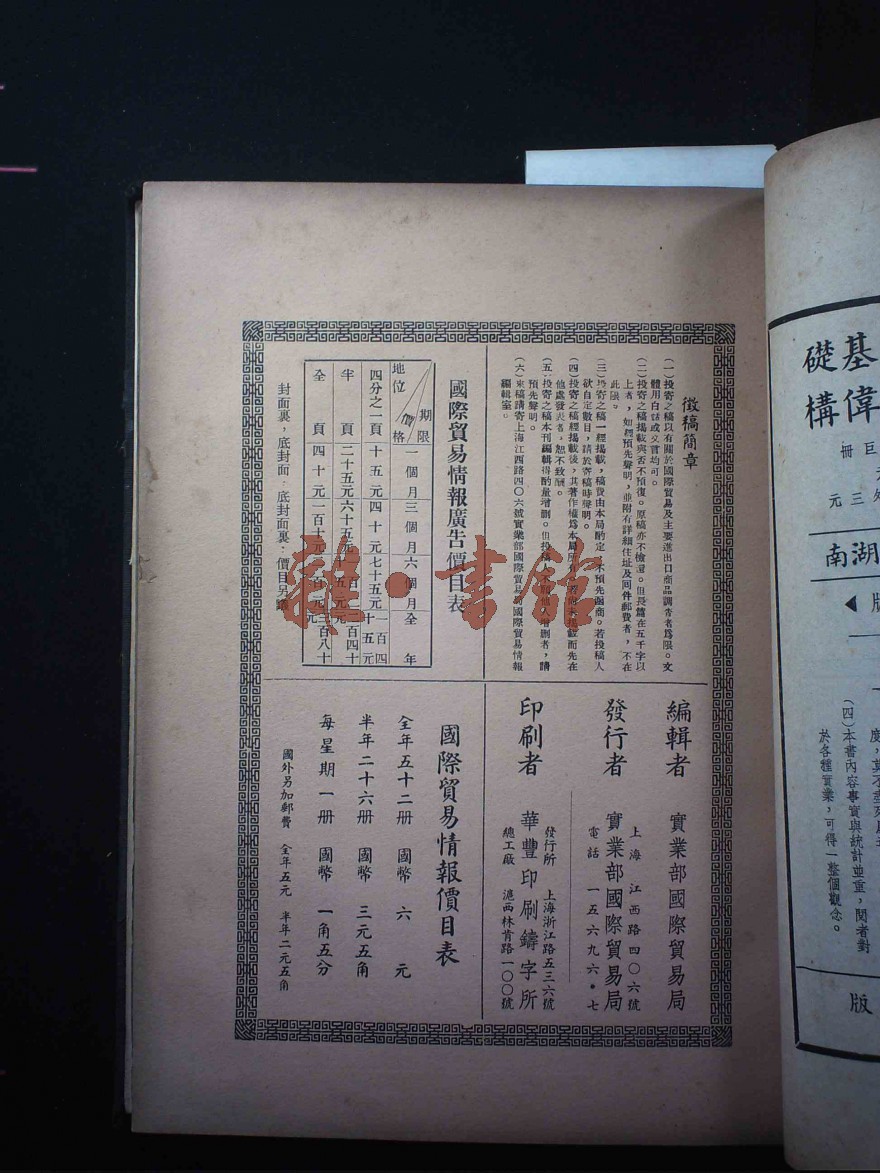 徵稿簡章
(一)投寄之稿以有關於國際貿易及主要進出口商品調查者爲限。文
體用白話或文言均可。
(二)投寄之稿揭載與否不預復。原稿亦不檢還。但長篇在五千字以
上者,如經預先聲明,並附有詳細住址及回件郵費者,不在
此限。
(三)投寄之稿一經揭載,稿費由本局酌定,不預先函商。若投稿人
欲自定數目,請於寄稿時聲明。
(四)投寄之稿經揭載後,其著作權爲本局所
而先在
他處發表者,恕不致酬。
(五)投寄之稿本刊編輯得酌量增刪。但投
增刪者,請
預先聲明。
(六)來稿請寄上海江西路四〇六號實業部國際貿易局國際貿易情報
編輯室。
國際貿易情報廣告價目表
期限
價格
地位
一個月
三個月
六個月
全年
四分之一頁
十五元
四十元
七十五元
一百四十五元
半頁
二十五元
六十五元
二百四十元
全頁
四十元
一百十元
三百八十元
封面裏,底封面,底封面裏,價目另議
編輯者 實業部國際貿易局
發行者 實業部國際貿易局
上海江西路四〇六號
電話 一五六九六·七
印刷者 華豐印刷鑄字所
發行所 上海浙江路五三六號
總工廠 滬西林肯路一〇〇號
國際貿易情報價目表
全年五十二册 國幣 六元
半年二十六册 國幣 三元五角
每星期一册 國幣 一角五分
國外另加郵費 全年五元 半年二元五角
雜·書館
基
礎
偉
構
巨册
三元
湖南
版
(四)本書內容事實與統計並重,閱者對
於各種實業,可得一整個觀念。
版